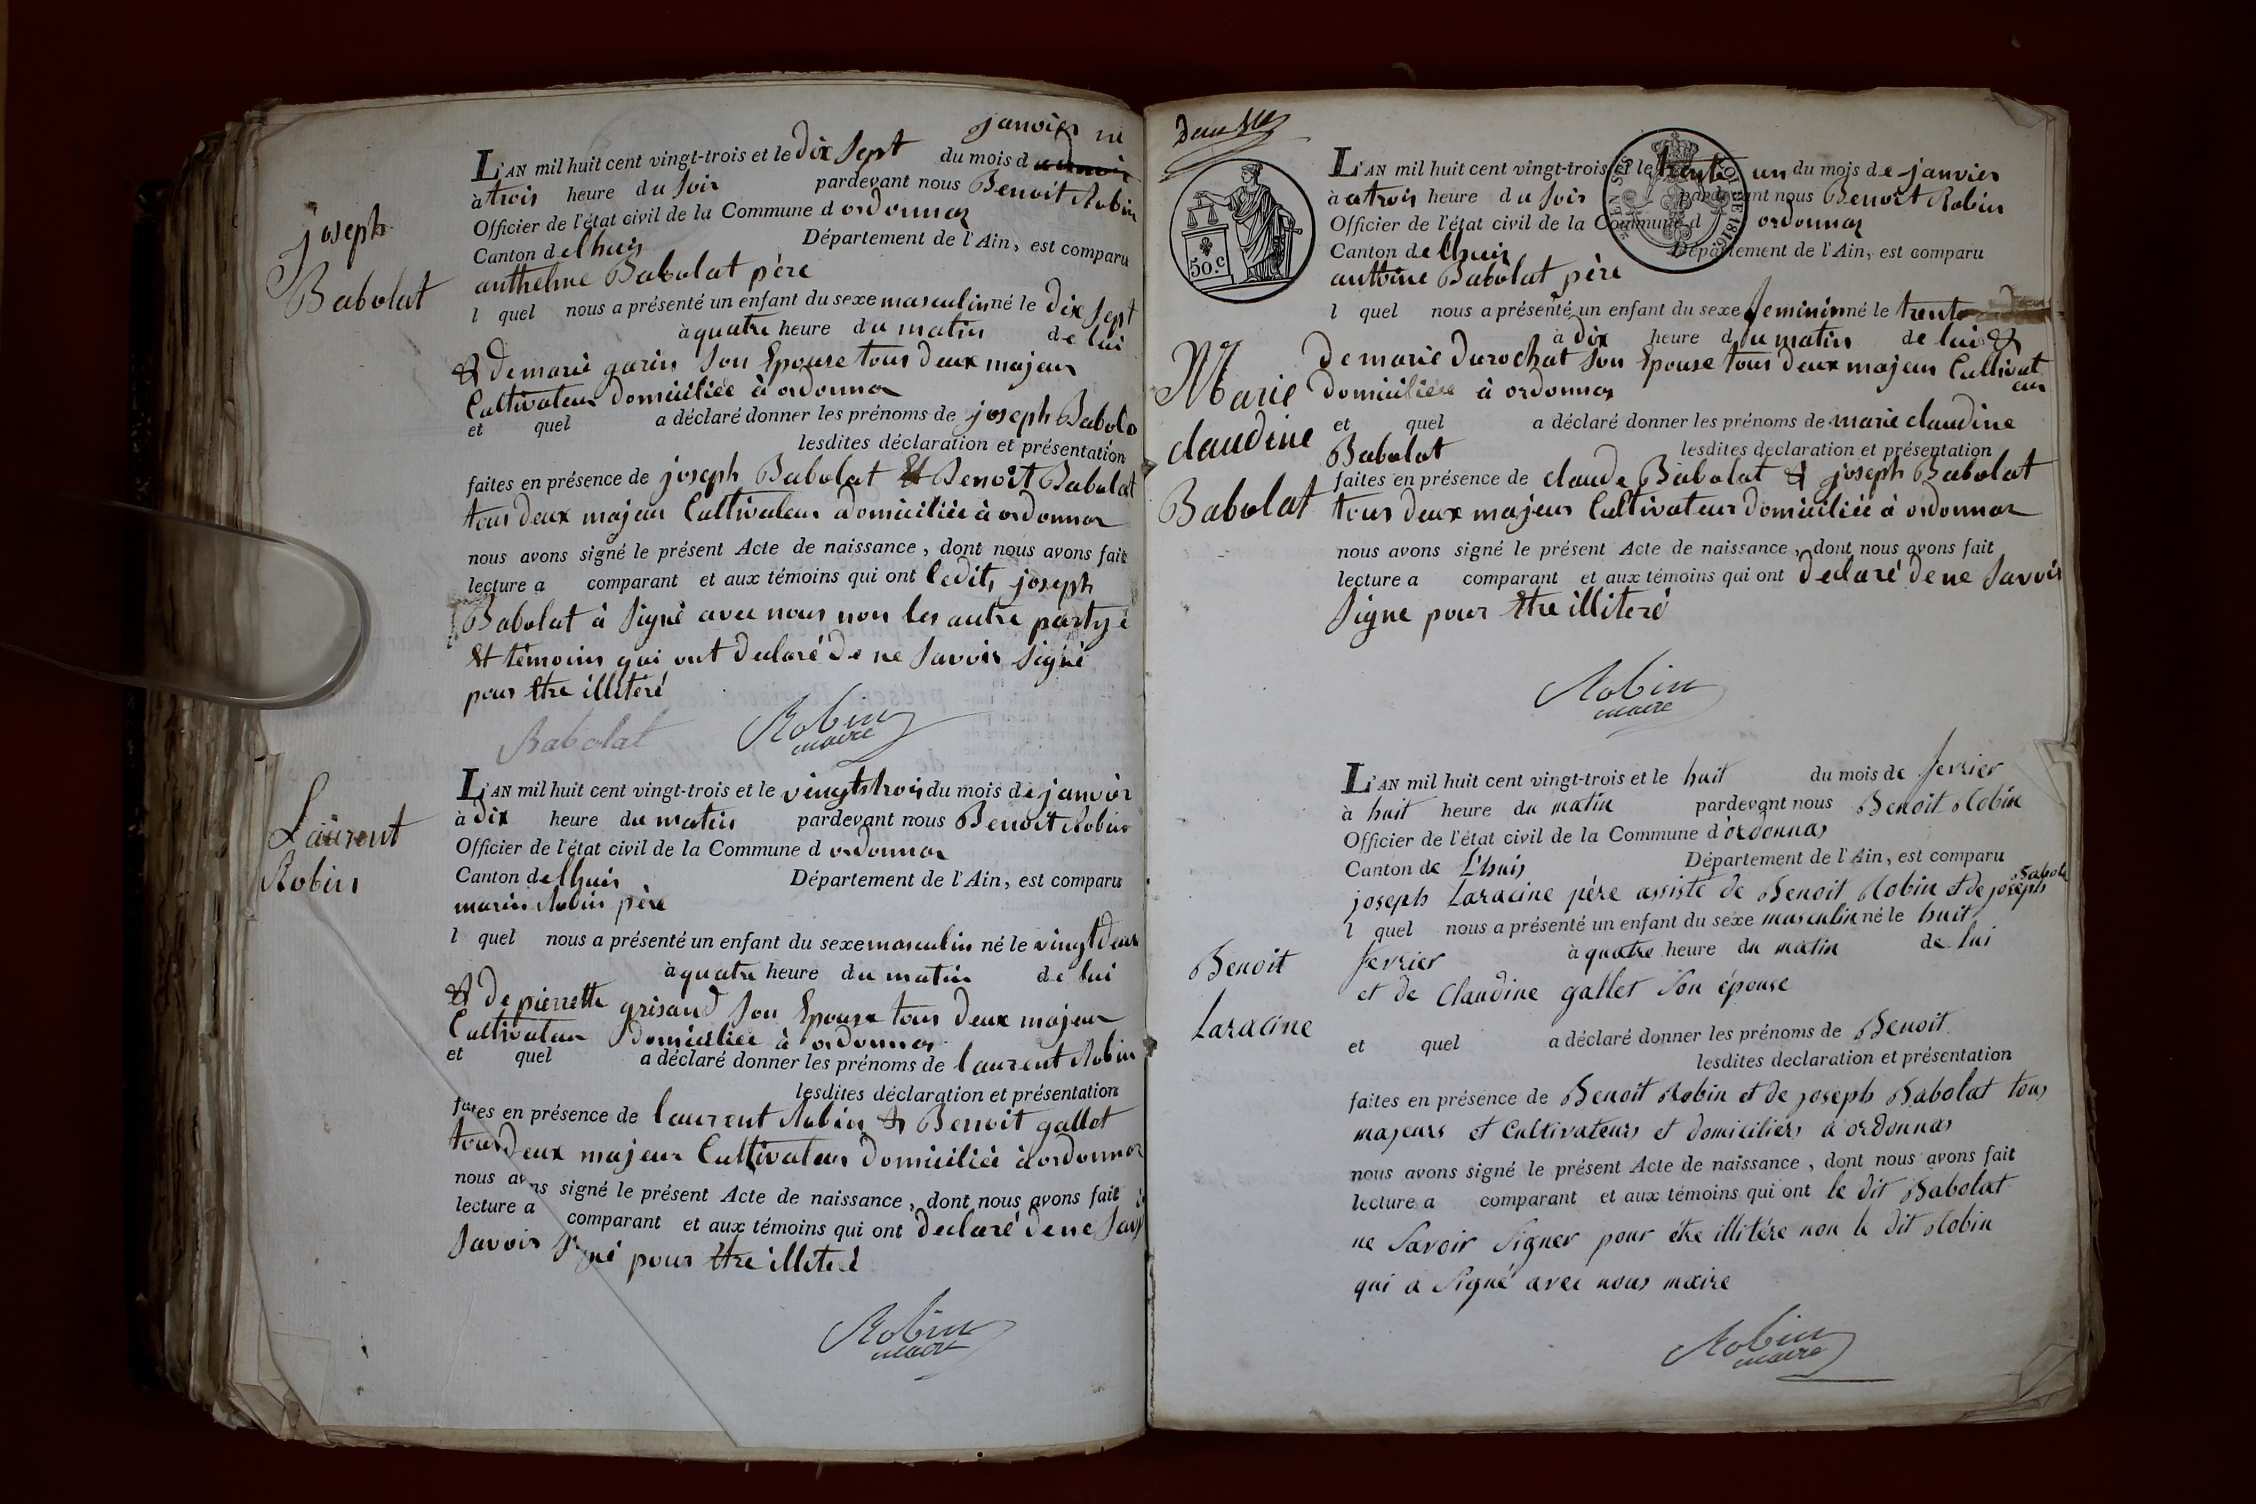 janvier
L'AN mil huit cent vingt-trois et le dix sept du mois d
à trois heure du soir pardevant nous Benoit Robin
Officier de l'état civil de la Commune d ordonnaz
Canton de lhuis Département de l'Ain, est comparu
anthelme Babolat père
l quel nous a présenté un enfant du sexe masculin né le dix sept
à quatre heure du matin de lui
& de marie garin son Epouse tous deux majeur
Cultivateur domiciliée à ordonnaz
et quel a déclaré donner les prénoms de joseph Babola
lesdites déclaration et présentation
faites en présence de joseph Babolat Et Benoit Babolat
tous deux majeur Cultivateur domiciliée à ordonnaz
nous avons signé le présent Acte de naissance, dont nous avons fait
lecture a comparant et aux témoins qui ont ledit joseph
Babolat à signé avec nous non les autre partyé
Et témoins qui ont declaré de ne savoir signé
pour être illiteré
Babolat Robin
maire
joseph
Babolat
L'AN mil huit cent vingt-trois et le vingt trois du mois de janvier
à dix heure du matin pardevant nous Benoit Robin
Officier de l'état civil de la Commune d ordonnaz
Canton de lhuis Département de l'Ain, est comparu
marin Robin père
l quel nous a présenté un enfant du sexe masculin né le vingt deux
à quatre heure du matin de lui
& de pierrette grisaud son Epouse tous deux majeur
Cultivateur domiciliée à ordonnaz
et quel a déclaré donner les prénoms de laurent Robin
lesdites déclaration et présentation
faites en présence de laurent Robin & Benoit gallet
tous deux majeur Cultivateur domiciliée à ordonnaz
nous avons signé le présent Acte de naissance, dont nous avons fait
lecture a comparant et aux témoins qui ont declaré de ne sav
savoir signé pour être illiteré
Robin
maire
Laurent
Robin
50.C
LOI DE 1816
L'AN mil huit cent vingt-trois et le trente un du mois de janvier
à atrois heure du soir pardevant nous Benoit Robin
Officier de l'état civil de la Commune d ordonnaz
Canton de lhuis Département de l'Ain, est comparu
antoine Babolat père
l quel nous a présenté un enfant du sexe feminin né le trente
à dix heure du matin de lui &
de marie durochat son Epouse tous deux majeur Cultivat
eur
domiciliée à ordonnaz
et quel a déclaré donner les prénoms de marie claudine
Babolat lesdites declaration et présentation
faites en présence de claude Babolat & joseph Babolat
tous deux majeur Cultivateur domiciliée à ordonnaz
nous avons signé le présent Acte de naissance, dont nous avons fait
lecture a comparant et aux témoins qui ont declaré de ne savoir
signe pour être illiteré
Robin
maire
Marie
claudine
Babolat
L'AN mil huit cent vingt-trois et le huit du mois de fevrier
à huit heure du matin pardevant nous Benoit Robin
Officier de l'état civil de la Commune d'ordonnas
Canton de L'huis Département de l'Ain, est comparu
joseph Laracine père assisté de Benoit Robin et de joseph Babola
l quel nous a présenté un enfant du sexe masculin né le huit
fevrier à quatre heure du matin de lui
et de Claudine gallet son épouse
et quel a déclaré donner les prénoms de Benoit
lesdites declaration et présentation
faites en présence de Benoit Robin et de joseph Babolat tous
majeurs et Cultivateurs et domiciliers à ordonnas
nous avons signé le présent Acte de naissance, dont nous avons fait
lecture a comparant et aux témoins qui ont le dit Babolat
ne savoir signer pour étre illitére non le dit Robin
qui a signé avec nous maire
Robin
maire
Benoit
Laracine